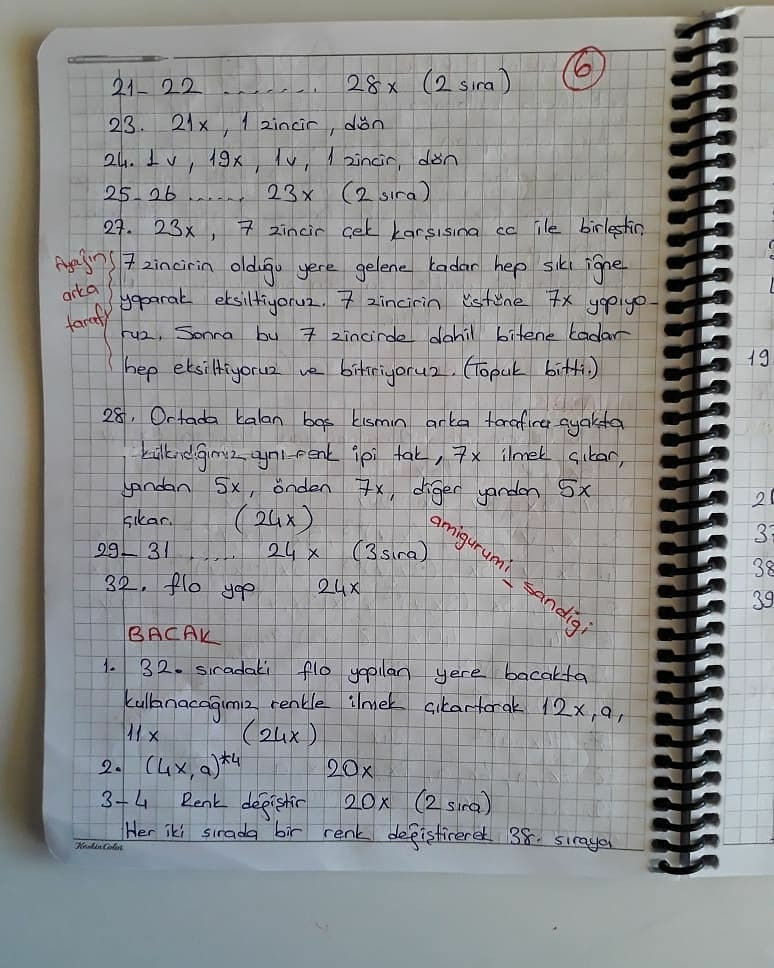 6
21-22 ........ 28x (2 sıra)
23. 21x, 1 zincir, dön
24. 1v, 19x, 1v, 1 zincir, dön
25-26 ...... 23x (2 sıra)
27. 23x, 7 zincir çek karşısına cc ile birleştir.
Ayağın arka tarafı
7 zincirin olduğu yere gelene kadar hep sık iğne
yaparak eksiltiyoruz. 7 zincirin üstüne 7x yapıyo-
ruz. Sonra bu 7 zincirde dahil bitene kadar
hep eksiltiyoruz ve bitiriyoruz. (Topuk bitti.)
28. Ortada kalan boş kısmın arka tarafına ayakta
kullandığımız aynı renk ipi tak, 7x ilmek çıkar,
yandan 5x, önden 7x, diğer yandan 5x
çıkar. (24x)
29-31 ..... 24x (3 sıra)
32. flo yap 24x
amigurumi_sandigi
BACAK
1. 32. sıradaki flo yapılan yere bacakta
kullanacağımız renkle ilmek çıkartarak 12x, a,
11x (24x)
2. (4x, a)*4 20x
3-4 Renk değiştir 20x (2 sıra)
Her iki sırada bir renk değiştirerek 38. sıraya
KeskinColor
19
2
3
38
39